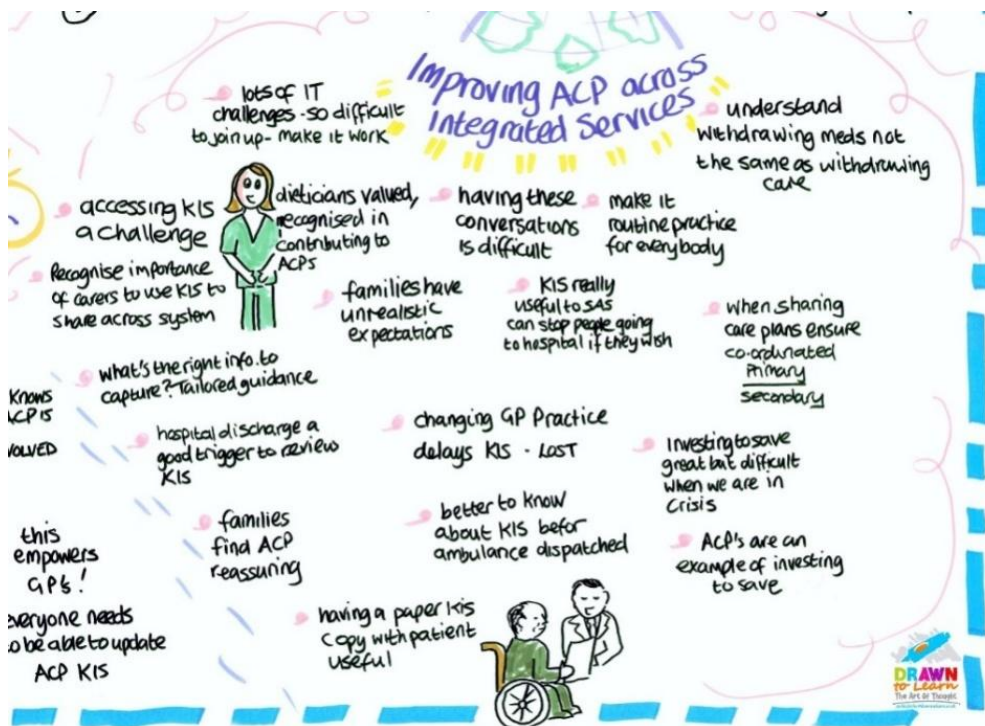 Improving ACP across
Integrated Services
lots of IT
challenges - so difficult
to join up - make it work
understand
withdrawing meds not
the same as withdrawing
care
accessing KIS
a challenge
dieticians valued,
recognised in
contributing to
ACPs
having these
conversations
is difficult
make it
routine practice
for everybody
Recognise importance
of carers to use KIS to
share across system
families have
unrealistic
expectations
KIS really
useful to SAS
can stop people going
to hospital if they wish
when sharing
care plans ensure
co-ordinated
Primary
secondary
what's the right info. to
capture? Tailored guidance
KNOWS
ACP IS
VOLVED
hospital discharge a
good trigger to review
KIS
changing GP Practice
delays KIS - LOST
Investing to save
great but difficult
when we are in
Crisis
this
empowers
GP's!
families
find ACP
reassuring
better to know
about KIS befor
ambulance dispatched
ACP's are an
example of investing
to save
everyone needs
to be able to update
ACP KIS
having a paper KIS
copy with patient
useful
DRAWN
to Learn
The Art Of Thought